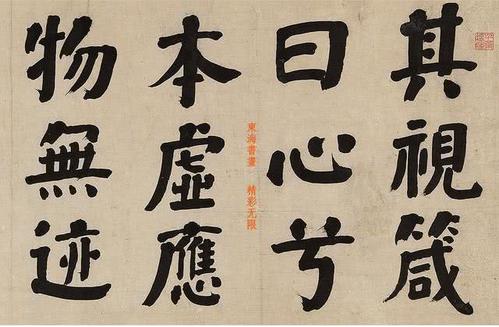 其視箴
曰心兮
本虛應
物無迹
東海書畫 精彩无限